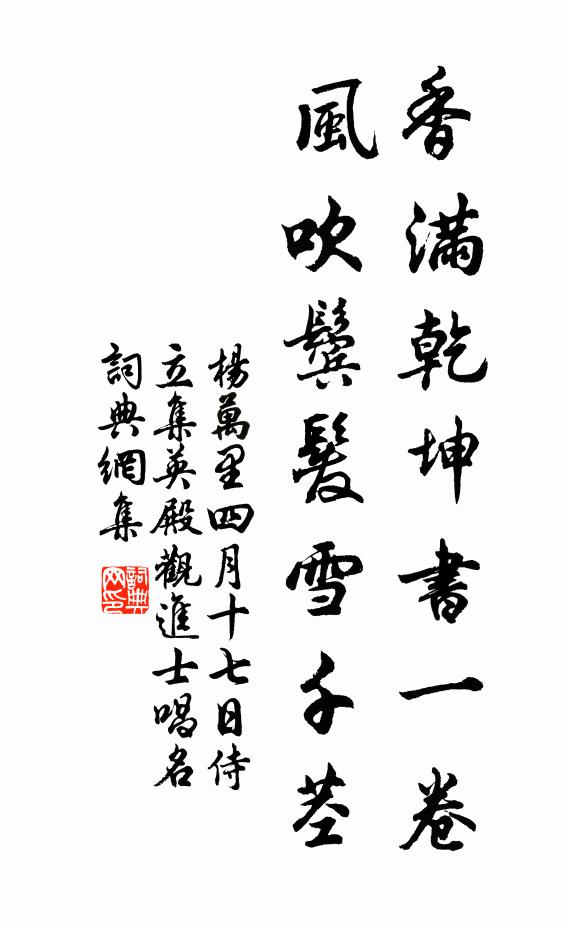 香滿乾坤書一卷
風吹鬢髮雪千莖
楊萬里四月十七日侍
立集英殿觀進士唱名
詞典網集
詞典
网印